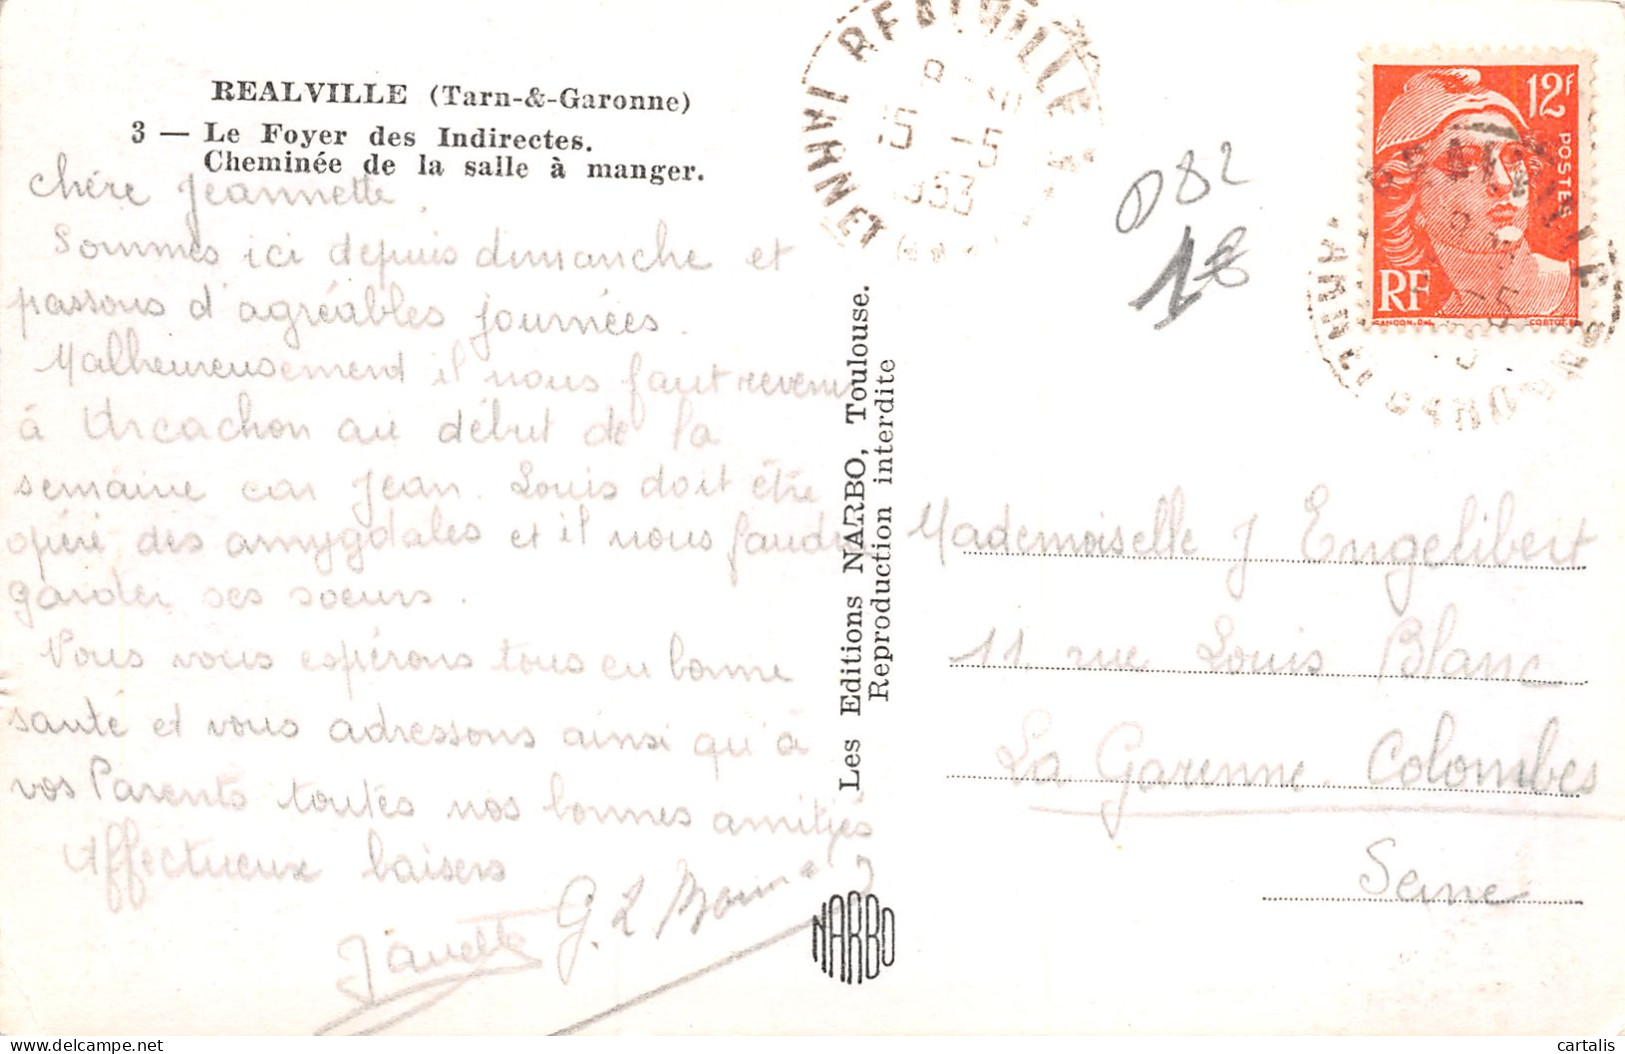 REALVILLE (Tarn-&-Garonne)
3 — Le Foyer des Indirectes.
Cheminée de la salle à manger.
chère Jeannette
Sommes ici depuis dimanche et
passons d'agréables journées.
Malheureusement il nous faut revenir
à Arcachon au début de la
semaine car Jean. Louis doit être
opéré des amygdales et il nous faudra
garder ses soeurs.
Nous vous espérons tous en bonne
santé et vous adressons ainsi qu'à
vos Parents toutes nos bonnes amitiés
Affectueux baisers
G. L
Les Editions NARBO, Toulouse.
Reproduction interdite
NARBO
REALVILLE
15 -5
1953
D82
1€
12F
POSTES
RF
REALVILLE
Mademoiselle J Engelibert
11. rue Louis Blanc
La Garenne. Colombes
Seine
cartalis